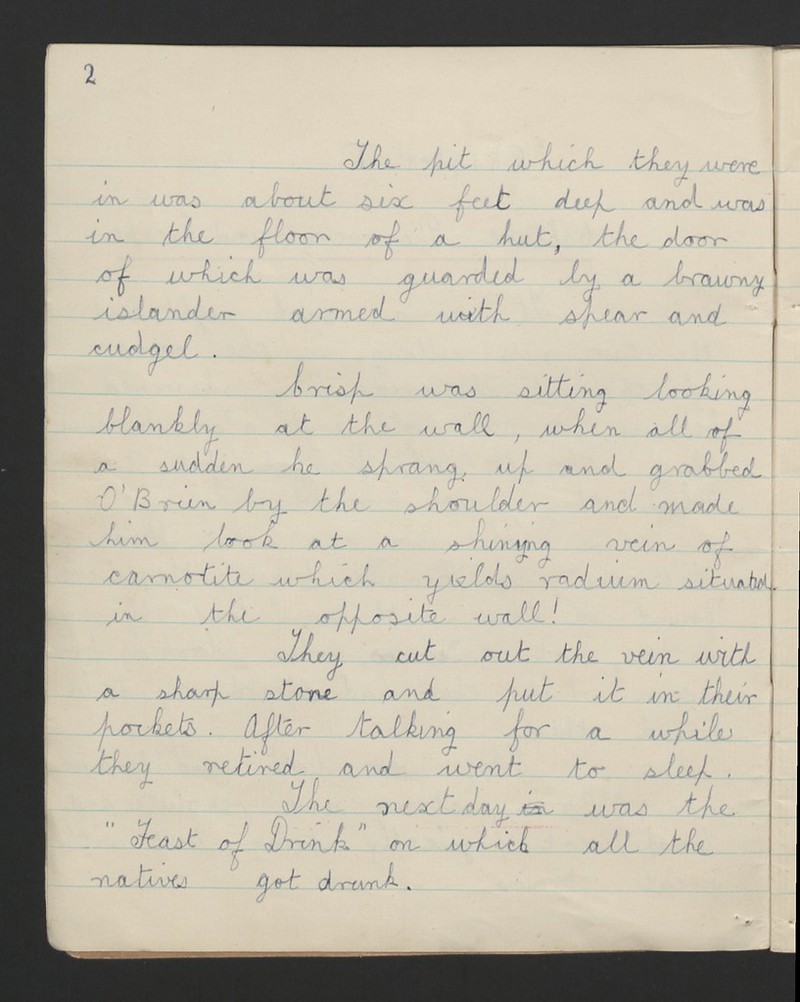 2
The pit which they were
in was about six feet deep and was
in the floor of a hut, the door
of which was guarded by a brawny
islander armed with spear and
cudgel.
Crisp was sitting looking
blankly at the wall, when all of
a sudden he sprang up and grabbed
O'Brien by the shoulder and made
him look at a shining vein of
carnotite which yields radium situated
in the opposite wall!
They cut out the vein with
a sharp stone and put it in their
pockets. After talking for a while
they retired and went to sleep.
The next day in was the
"Feast of Drink" on which all the
natives got drunk.